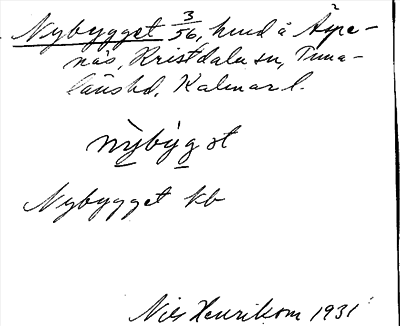 Nybygget 3/56, hmd å Äpe-
näs, Kristdala sn, Tuna-
läns hd, Kalmar l.
nybyg̣ət
Nybygget kb
Nils Henrikson 1931